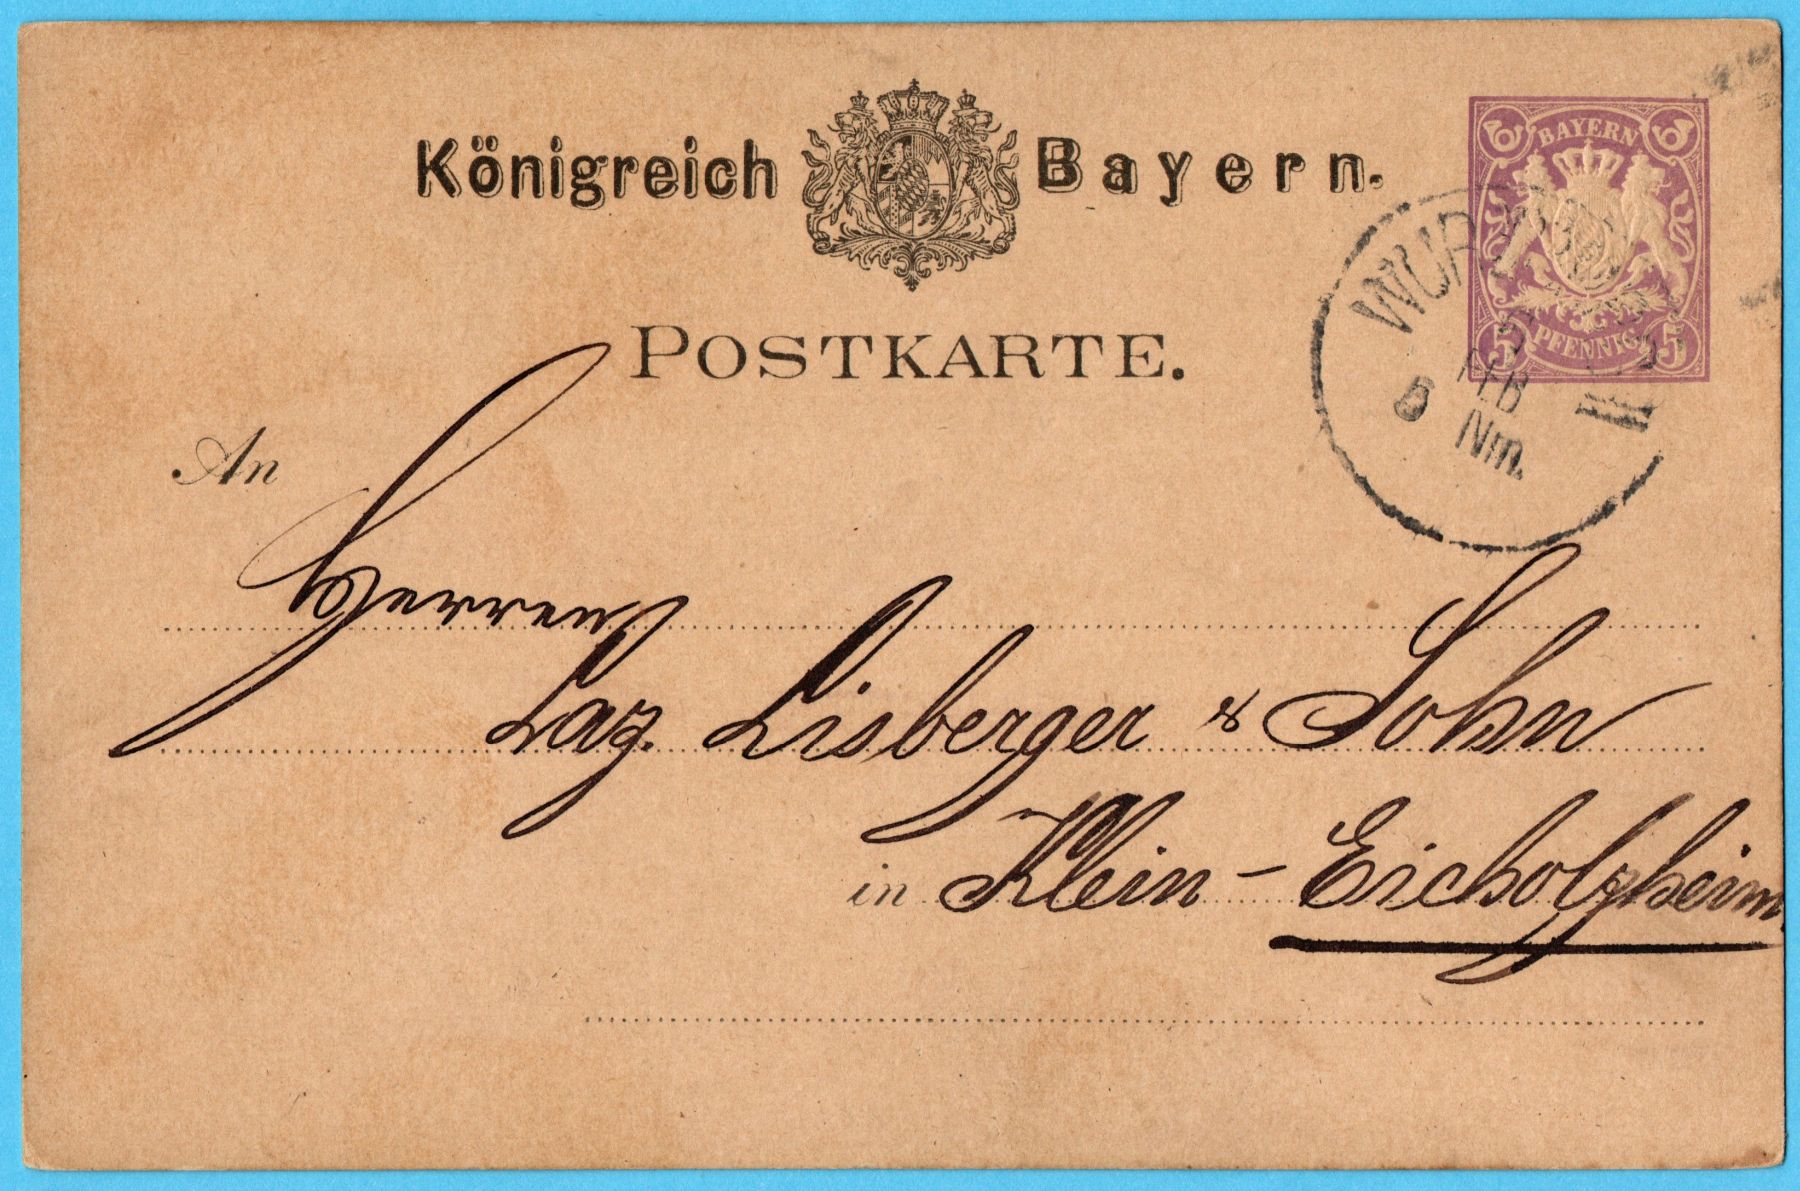 Königreich Bayern.
BAYERN
5 PFENNIG 5
POSTKARTE.
FEB
5 Nm.
An
Herren
Laz. Lisberger & Sohn
in Klein-Eicholzheim.